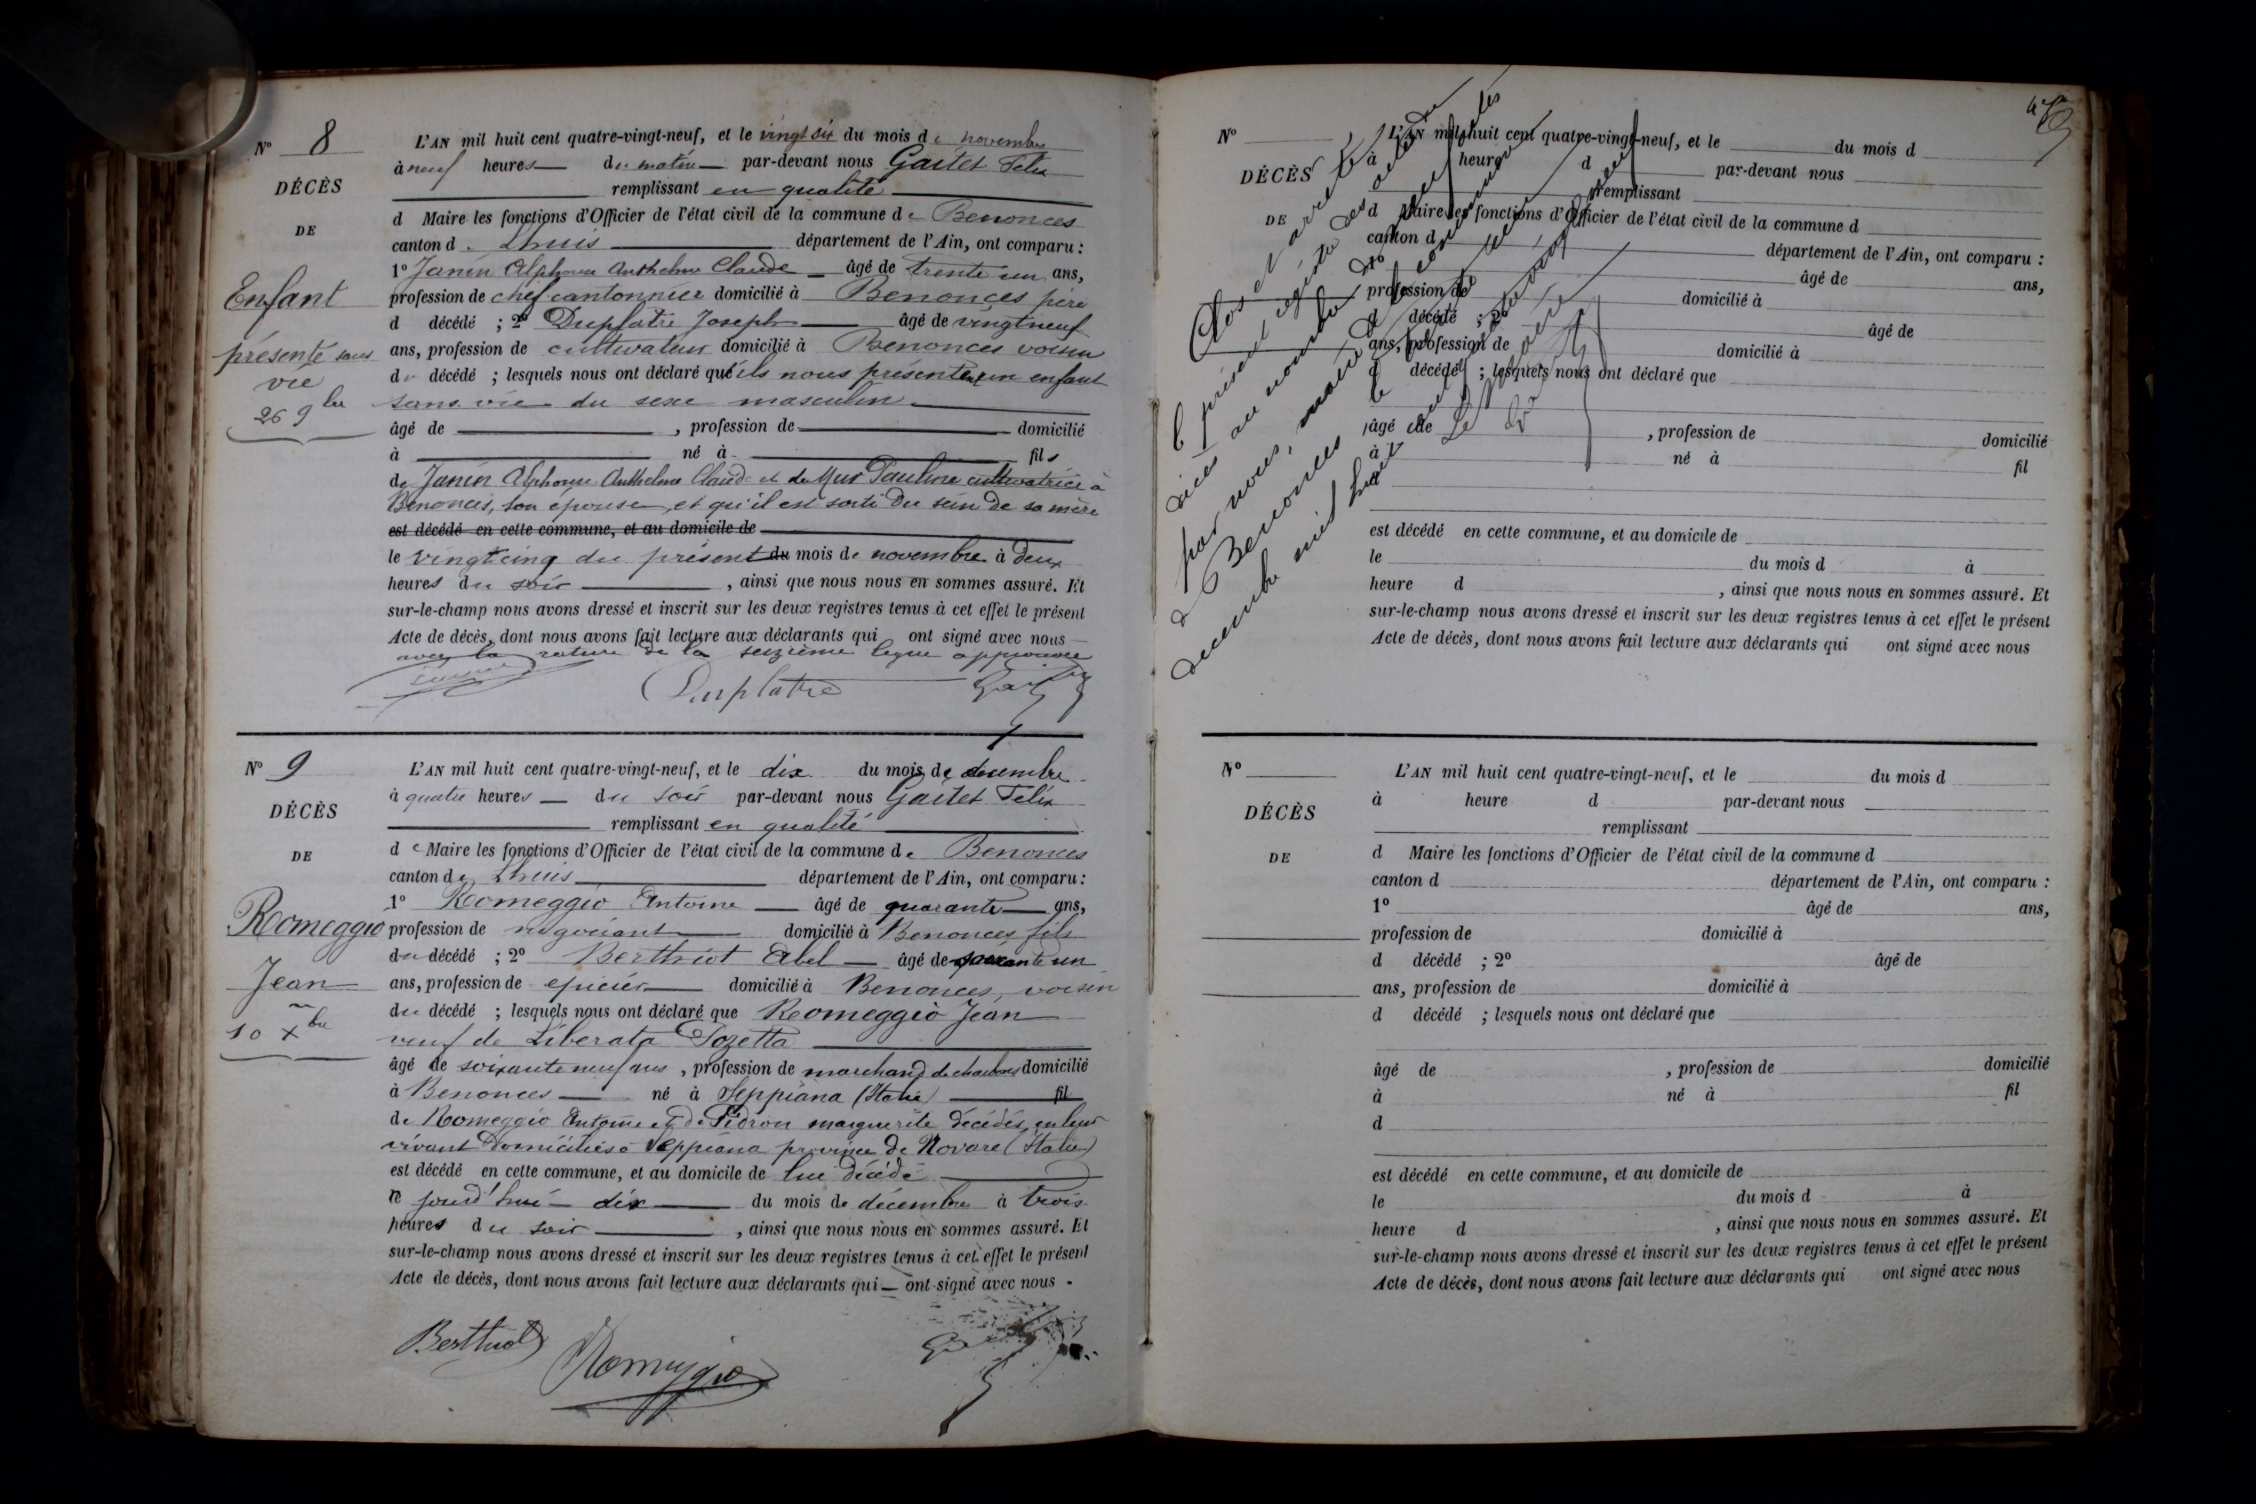 N° 8
DÉCÈS
DE
Enfant
présenté sans
vie
26 9bre
L'AN mil huit cent quatre-vingt-neuf, et le vingt six du mois de novembre
à neuf heures du matin par-devant nous Gaitet Felix
remplissant en qualité
d Maire les fonctions d'Officier de l'état civil de la commune de Benonces
canton de Lhuis département de l'Ain, ont comparu :
1° Janin Alphonse Anthelme Claude âgé de trente un ans,
profession de chef cantonnier domicilié à Benonces père
d décédé ; 2° Duplatre Joseph âgé de vingt neuf
ans, profession de cultivateur domicilié à Benonces voisin
du décédé ; lesquels nous ont déclaré qu'ils nous présentent un enfant
sans vie du sexe masculin
âgé de , profession de domicilié
à né à fils
de Janin Alphonse Anthelme Claude et de Pauline cultivatrice à
Benonces, son épouse, et qu'il est sorti du sein de sa mère
est décédé en cette commune, et au domicile de
le vingt cinq du présent du mois de novembre à deux
heures du soir , ainsi que nous nous en sommes assuré. Et
sur-le-champ nous avons dressé et inscrit sur les deux registres tenus à cet effet le présent
Acte de décès, dont nous avons fait lecture aux déclarants qui ont signé avec nous
avec la rature de la seizième ligne approuvée
Duplatre
N° 9
DÉCÈS
DE
Romeggio
Jean
10 Xbre
L'AN mil huit cent quatre-vingt-neuf, et le dix du mois de decembre
à quatre heures du soir par-devant nous Gaitet Felix
remplissant en qualité
de Maire les fonctions d'Officier de l'état civil de la commune de Benonces
canton de Lhuis département de l'Ain, ont comparu :
1° Romeggio Antoine âgé de quarante ans,
profession de négociant domicilié à Benonces fils
du décédé ; 2° Berthiot Abel âgé de un
ans, profession de epicier domicilié à Benonces, voisin
du décédé ; lesquels nous ont déclaré que Romeggio Jean
veuf de Liberata
âgé de soixante neuf ans , profession de marchand de domicilié
à Benonces né à Seppiana (Italie) fil
de Romeggio Antoine et de Pidron marguerite décédés, en leur
vivant domiciliés à Seppiana province de Novare (Italie)
est décédé en cette commune, et au domicile de lui décédé
le jourd'hui dix du mois de décembre à trois
heures du soir , ainsi que nous nous en sommes assuré. Et
sur-le-champ nous avons dressé et inscrit sur les deux registres tenus à cet effet le présent
Acte de décès, dont nous avons fait lecture aux déclarants qui ont signé avec nous
Berthiot
Romeggio
N°
DÉCÈS
DE
L'AN mil huit cent quatre-vingt-neuf, et le du mois d
à heure d par-devant nous
remplissant
d Maire les fonctions d'Officier de l'état civil de la commune d
canton d département de l'Ain, ont comparu :
âgé de ans,
profession de domicilié à
d décédé ; 2° âgé de
ans, profession de domicilié à
d décédé ; lesquels nous ont déclaré que
âgé de , profession de domicilié
à né à fil
d
est décédé en cette commune, et au domicile de
le du mois d à
heure d , ainsi que nous nous en sommes assuré. Et
sur-le-champ nous avons dressé et inscrit sur les deux registres tenus à cet effet le présent
Acte de décès, dont nous avons fait lecture aux déclarants qui ont signé avec nous
Clos et arrêté
le présent registre des actes de
décès au nombre de neuf
par nous, maire de la commune
de Benonces le
decembre mil huit cent quatre vingt neuf
Le Maire
N°
DÉCÈS
DE
L'AN mil huit cent quatre-vingt-neuf, et le du mois d
à heure d par-devant nous
remplissant
d Maire les fonctions d'Officier de l'état civil de la commune d
canton d département de l'Ain, ont comparu :
1° âgé de ans,
profession de domicilié à
d décédé ; 2° âgé de
ans, profession de domicilié à
d décédé ; lesquels nous ont déclaré que
âgé de , profession de domicilié
à né à fil
d
est décédé en cette commune, et au domicile de
le du mois d à
heure d , ainsi que nous nous en sommes assuré. Et
sur-le-champ nous avons dressé et inscrit sur les deux registres tenus à cet effet le présent
Acte de décès, dont nous avons fait lecture aux déclarants qui ont signé avec nous